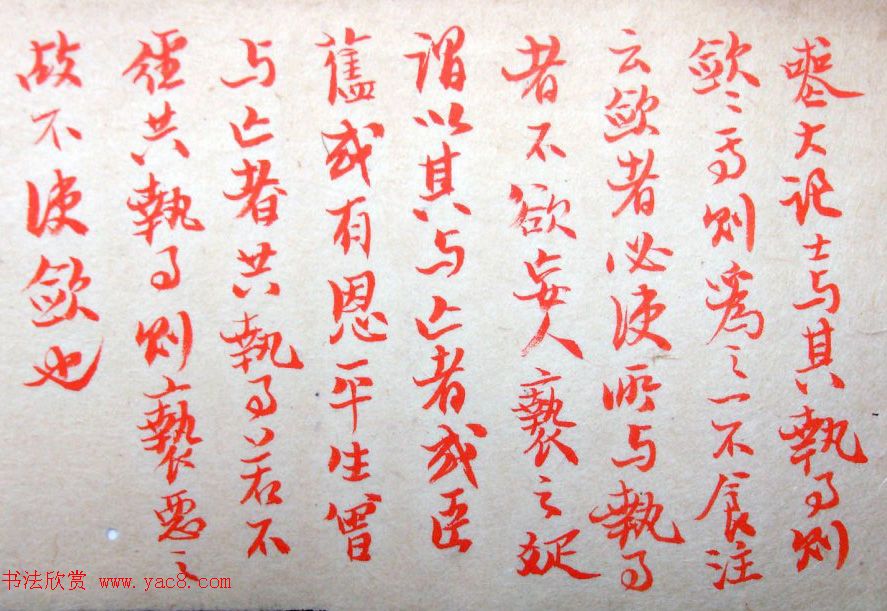 喪大記士与其執事則
歛〻焉則為之一不食注
云歛者必使所与執事
者不欲妄人褻之疏
謂以其与亡者或臣
舊或有恩平生曾
与亡者共執事若不
經共執事則褻惡之
故不使歛也
书法欣赏 www.yac8.com